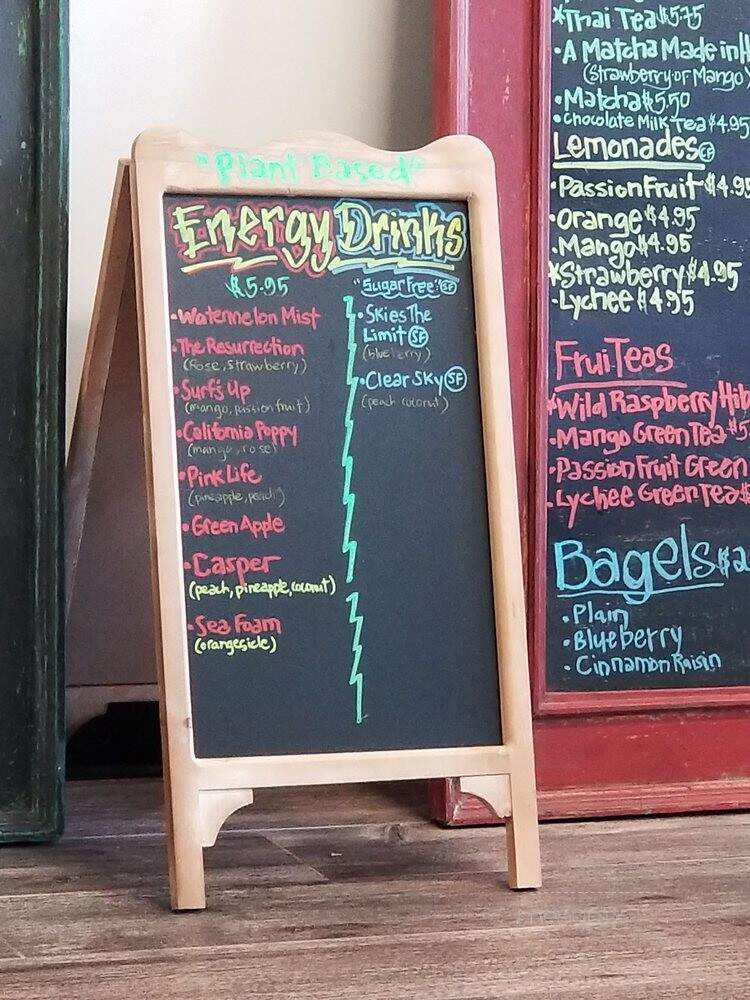 "Plant Based"
Energy Drinks
$5.95
• Watermelon Mist
• The Resurrection
(Rose, Strawberry)
• Surf's Up
(mango, passion fruit)
• California Poppy
(mango, rose)
• Pink Life
(pineapple, peach)
• Green Apple
• Casper
(peach, pineapple, coconut)
• Sea Foam
(orangesicle)
"Sugar Free" SF
• Skies The
Limit SF
(blueberry)
• Clear Sky SF
(peach coconut)
*Thai Tea $5.75
• A Matcha Made in H
(Strawberry or Mango)
• Matcha $5.50
• Chocolate Milk Tea $4.95
Lemonades CF
• Passion Fruit $4.95
• Orange $4.95
• Mango $4.95
*Strawberry $4.95
• Lychee $4.95
Frui Teas
*Wild Raspberry Hib
• Mango Green Tea $5
• Passion Fruit Green
• Lychee Green Tea $
Bagels $2
• Plain
• Blueberry
• Cinnamon Raisin